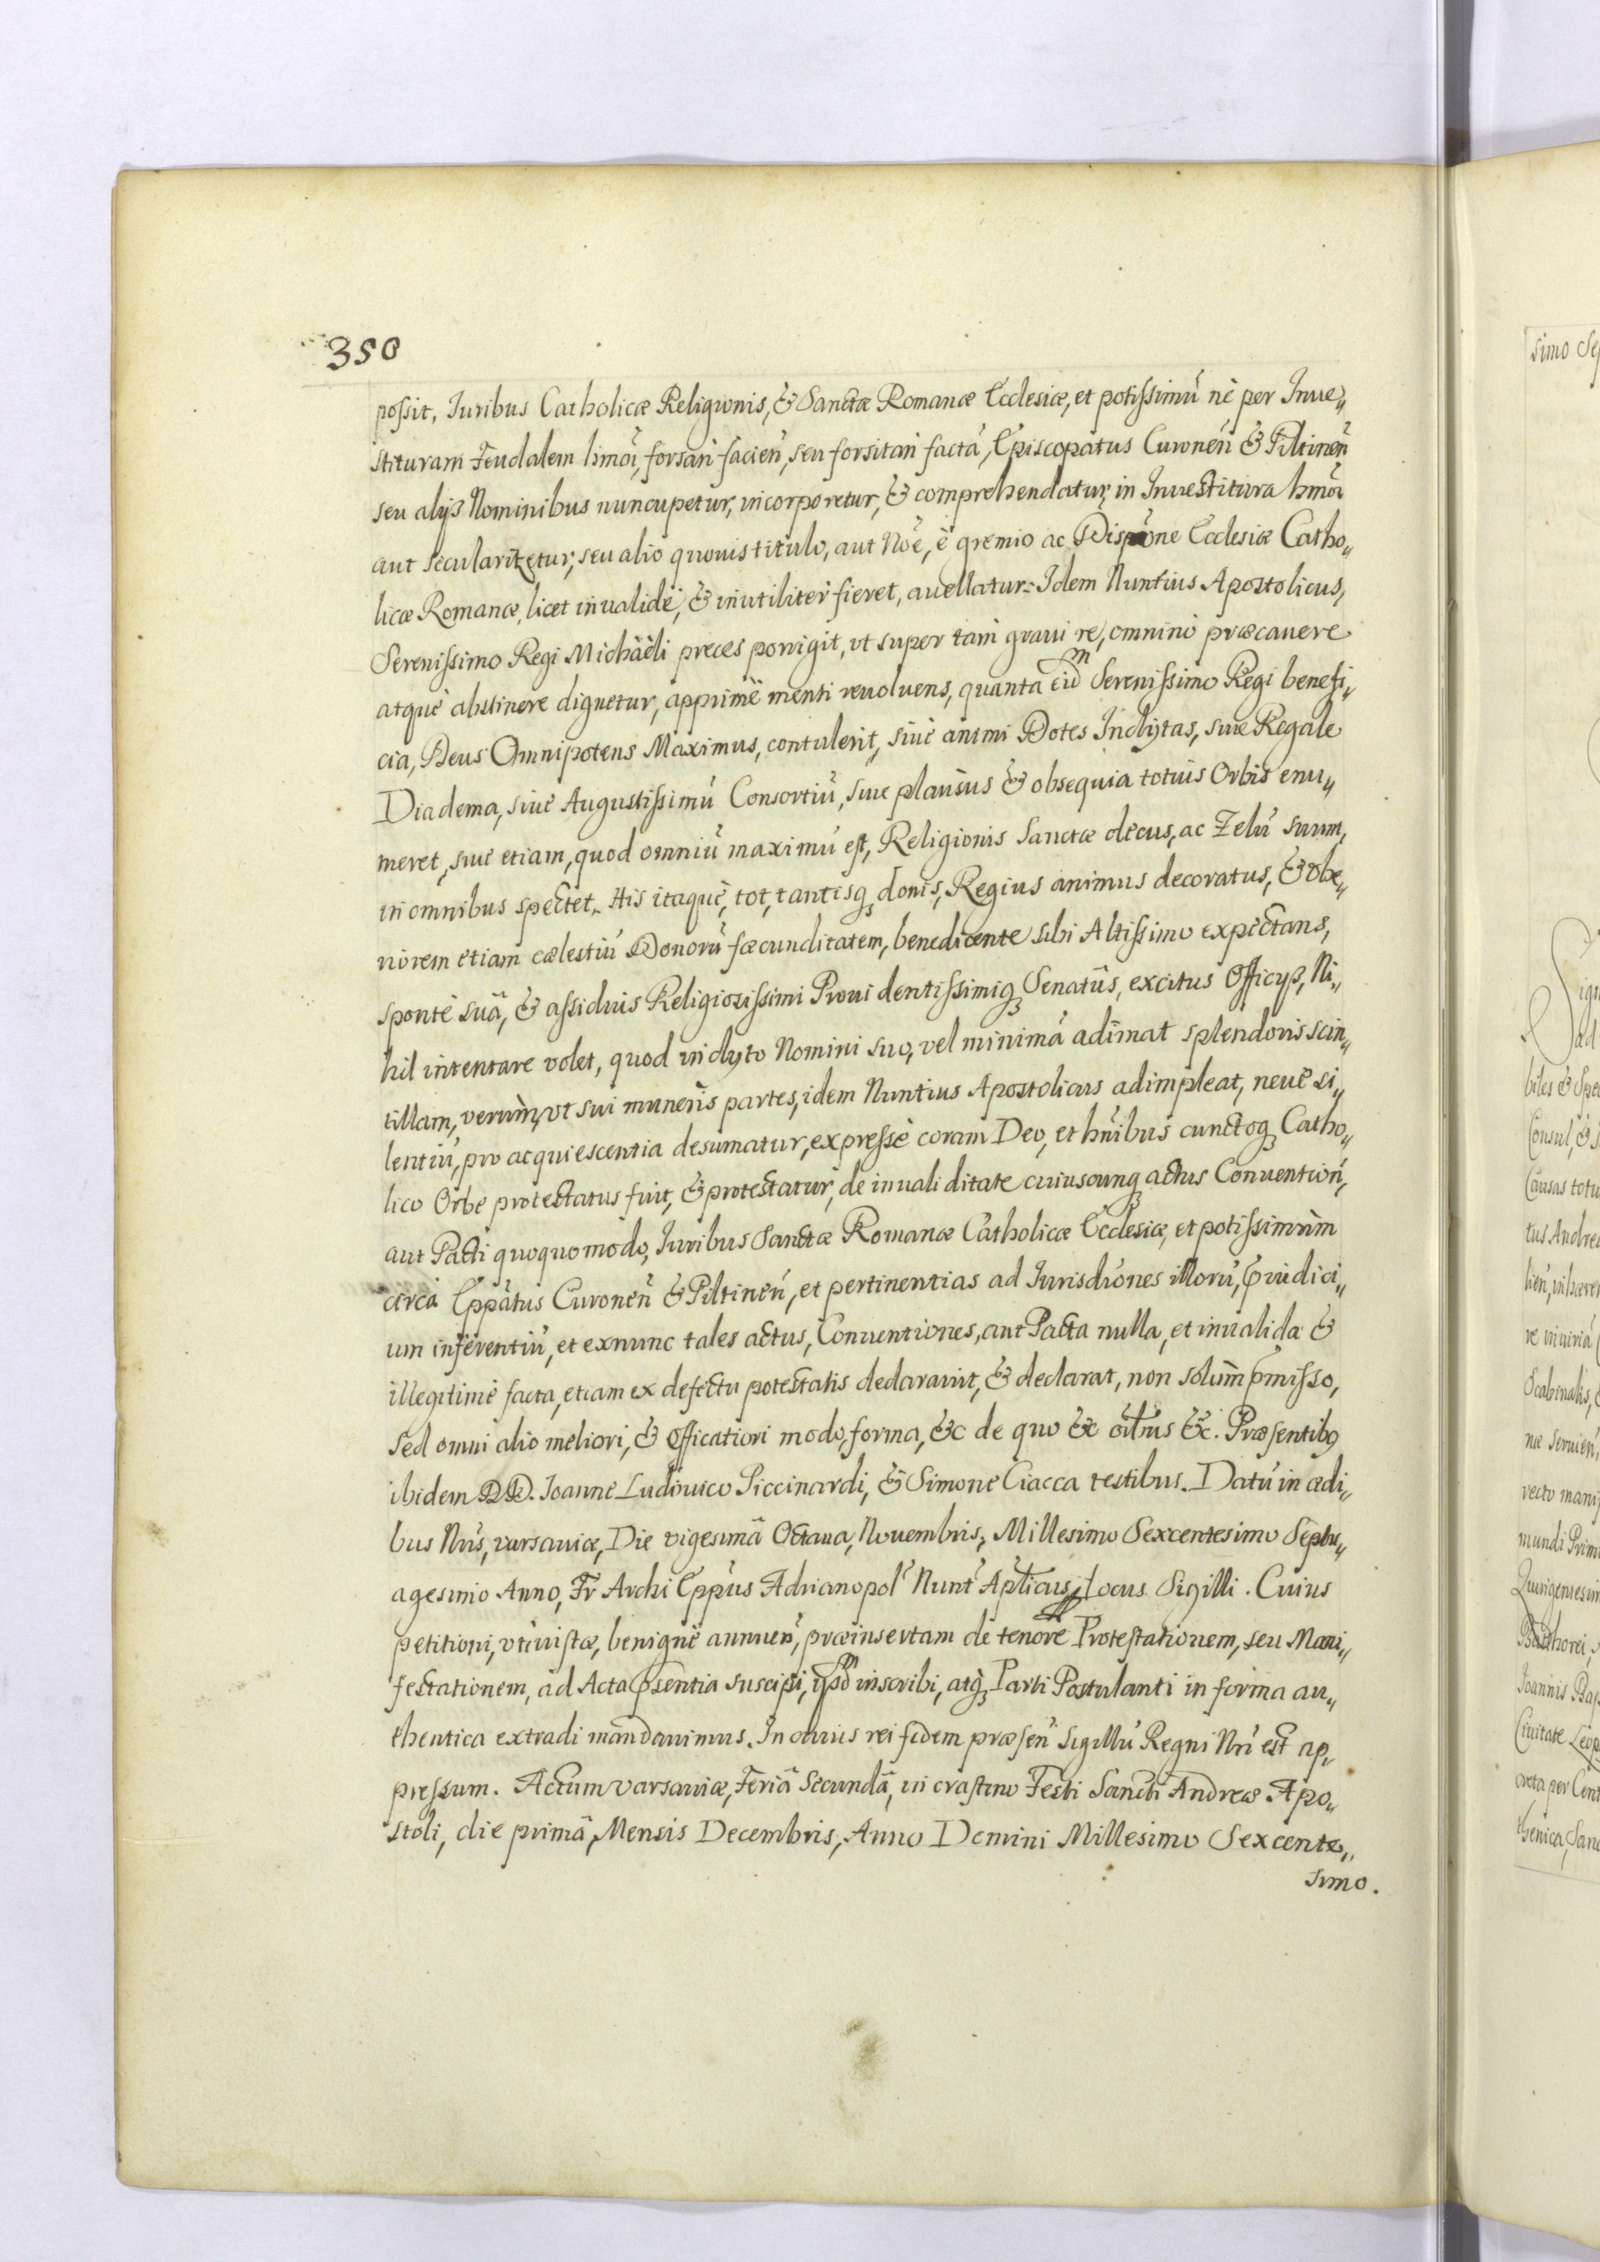 350
possit, Juribus Catholicæ Religionis, & Sanctæ Romanæ Ecclesiæ, et potissimū nè per Inue„
stituram Feudalem hmōi, forsan facien̄, seu forsitan factā, Episcopatus Curonēn & Piltinēn
seu alijs Nominibus nuncupetur, incorporetur, & comprehendatur, in Inuestitura hmōi
aut secularizetur, seu alio quouis titulo, aut Nōe, è gremio ac Ecclesiæ Catho„
licæ Romanæ, licet inualidè, & inutiliter fieret, auellatur. Idem Nuntius Apostolicus,
Serenissimo Regi Michaëli preces porrigit, vt super tam graui re, omnino præcauere
atquè abstinere dignetur, apprimè menti reuoluens, quanta eidm Serenissimo Regi benefi„
cia, Deus Omnipotens Maximus, contulerit, siuè animi Dotes Inclytas, siue Regale
Diadema, siuè Augustissimū Consortiū, siue plausus & obsequia totius Orbis enu„
meret, siuè etiam, quod omniū maximū est, Religionis Sanctæ decus, ac Zelū suum,
in omnibus spectet. His itaquè, tot, tantisq₃ donis, Regius animus decoratus, & vbe„
riorem etiam cælestiū Donorū fæcunditatem, benedicente sibi Altissimo expectans,
spontè suâ, & assiduis Religiosissimi Prouidentissimiq₃ Senatûs, excitus Officys, Ni„
hil intentare volet, quod inclyto Nomini suo, vel minimā adimat splendoris scin„
tillam, verùm, vt sui muneris partes, idem Nuntius Apostolicus adimpleat, neuè si„
lentiū, pro acquiescentia desumatur, expressè coram Deo, et hn̄ibus cunctoq₃ Catho„
lico Orbe protestatus fuit, & protestatur, de inualiditate cuiuscunq₃ actus Conuention̄,
aut Pacti quoquomodo, Juribus Sanctæ Romanæ Catholicæ Ecclesiæ, et potissimùm
circà Eppātus Curonēn & Piltinēn, et pertinentias ad Jurisdīones illorū, p̄iudici„
um inferentiū, et exnunc tales actus, Conuentiones, aut Pacta nulla, et inualida &
illegitimè facta, etiam ex defectu potestatis declarauit, & declarat, non solùm p̄misso,
sed omni alio meliori, & efficatiori modo, forma, &c de quo &c &c. Præsentibq
ibidem DD. Ioanne Ludouico Piccinardi, & Simone Ciacca testibus. Datū in ædi„
bus Nr̄is, varsauiæ, Die vigesimâ Octaua, Nouembris, Millesimo Sexcentesimo Septu„
agesimo Anno, Fr Archi Eppūs Adrianopol̄ Nunt̄ Aplicus, Locus Sigilli. Cuius
petitioni, vti iustæ, benignè annuen̄, præinsertam de tenore Protestationem, seu Mani„
festationem, ad Acta p̄sentia suscipi, inscribi, atq₃ Parti Postulanti in forma au„
thentica extradi mandauimus. In cuius rei fidem præsen̄ Sigillū Regni Nr̄i est ap„
pressum. Actum varsauiæ, Feriâ Secundâ, in crastino Festi Sancti Andreæ Apo„
stoli, die primâ, Mensis Decembris, Anno Domini Millesimo Sexcente„
simo.